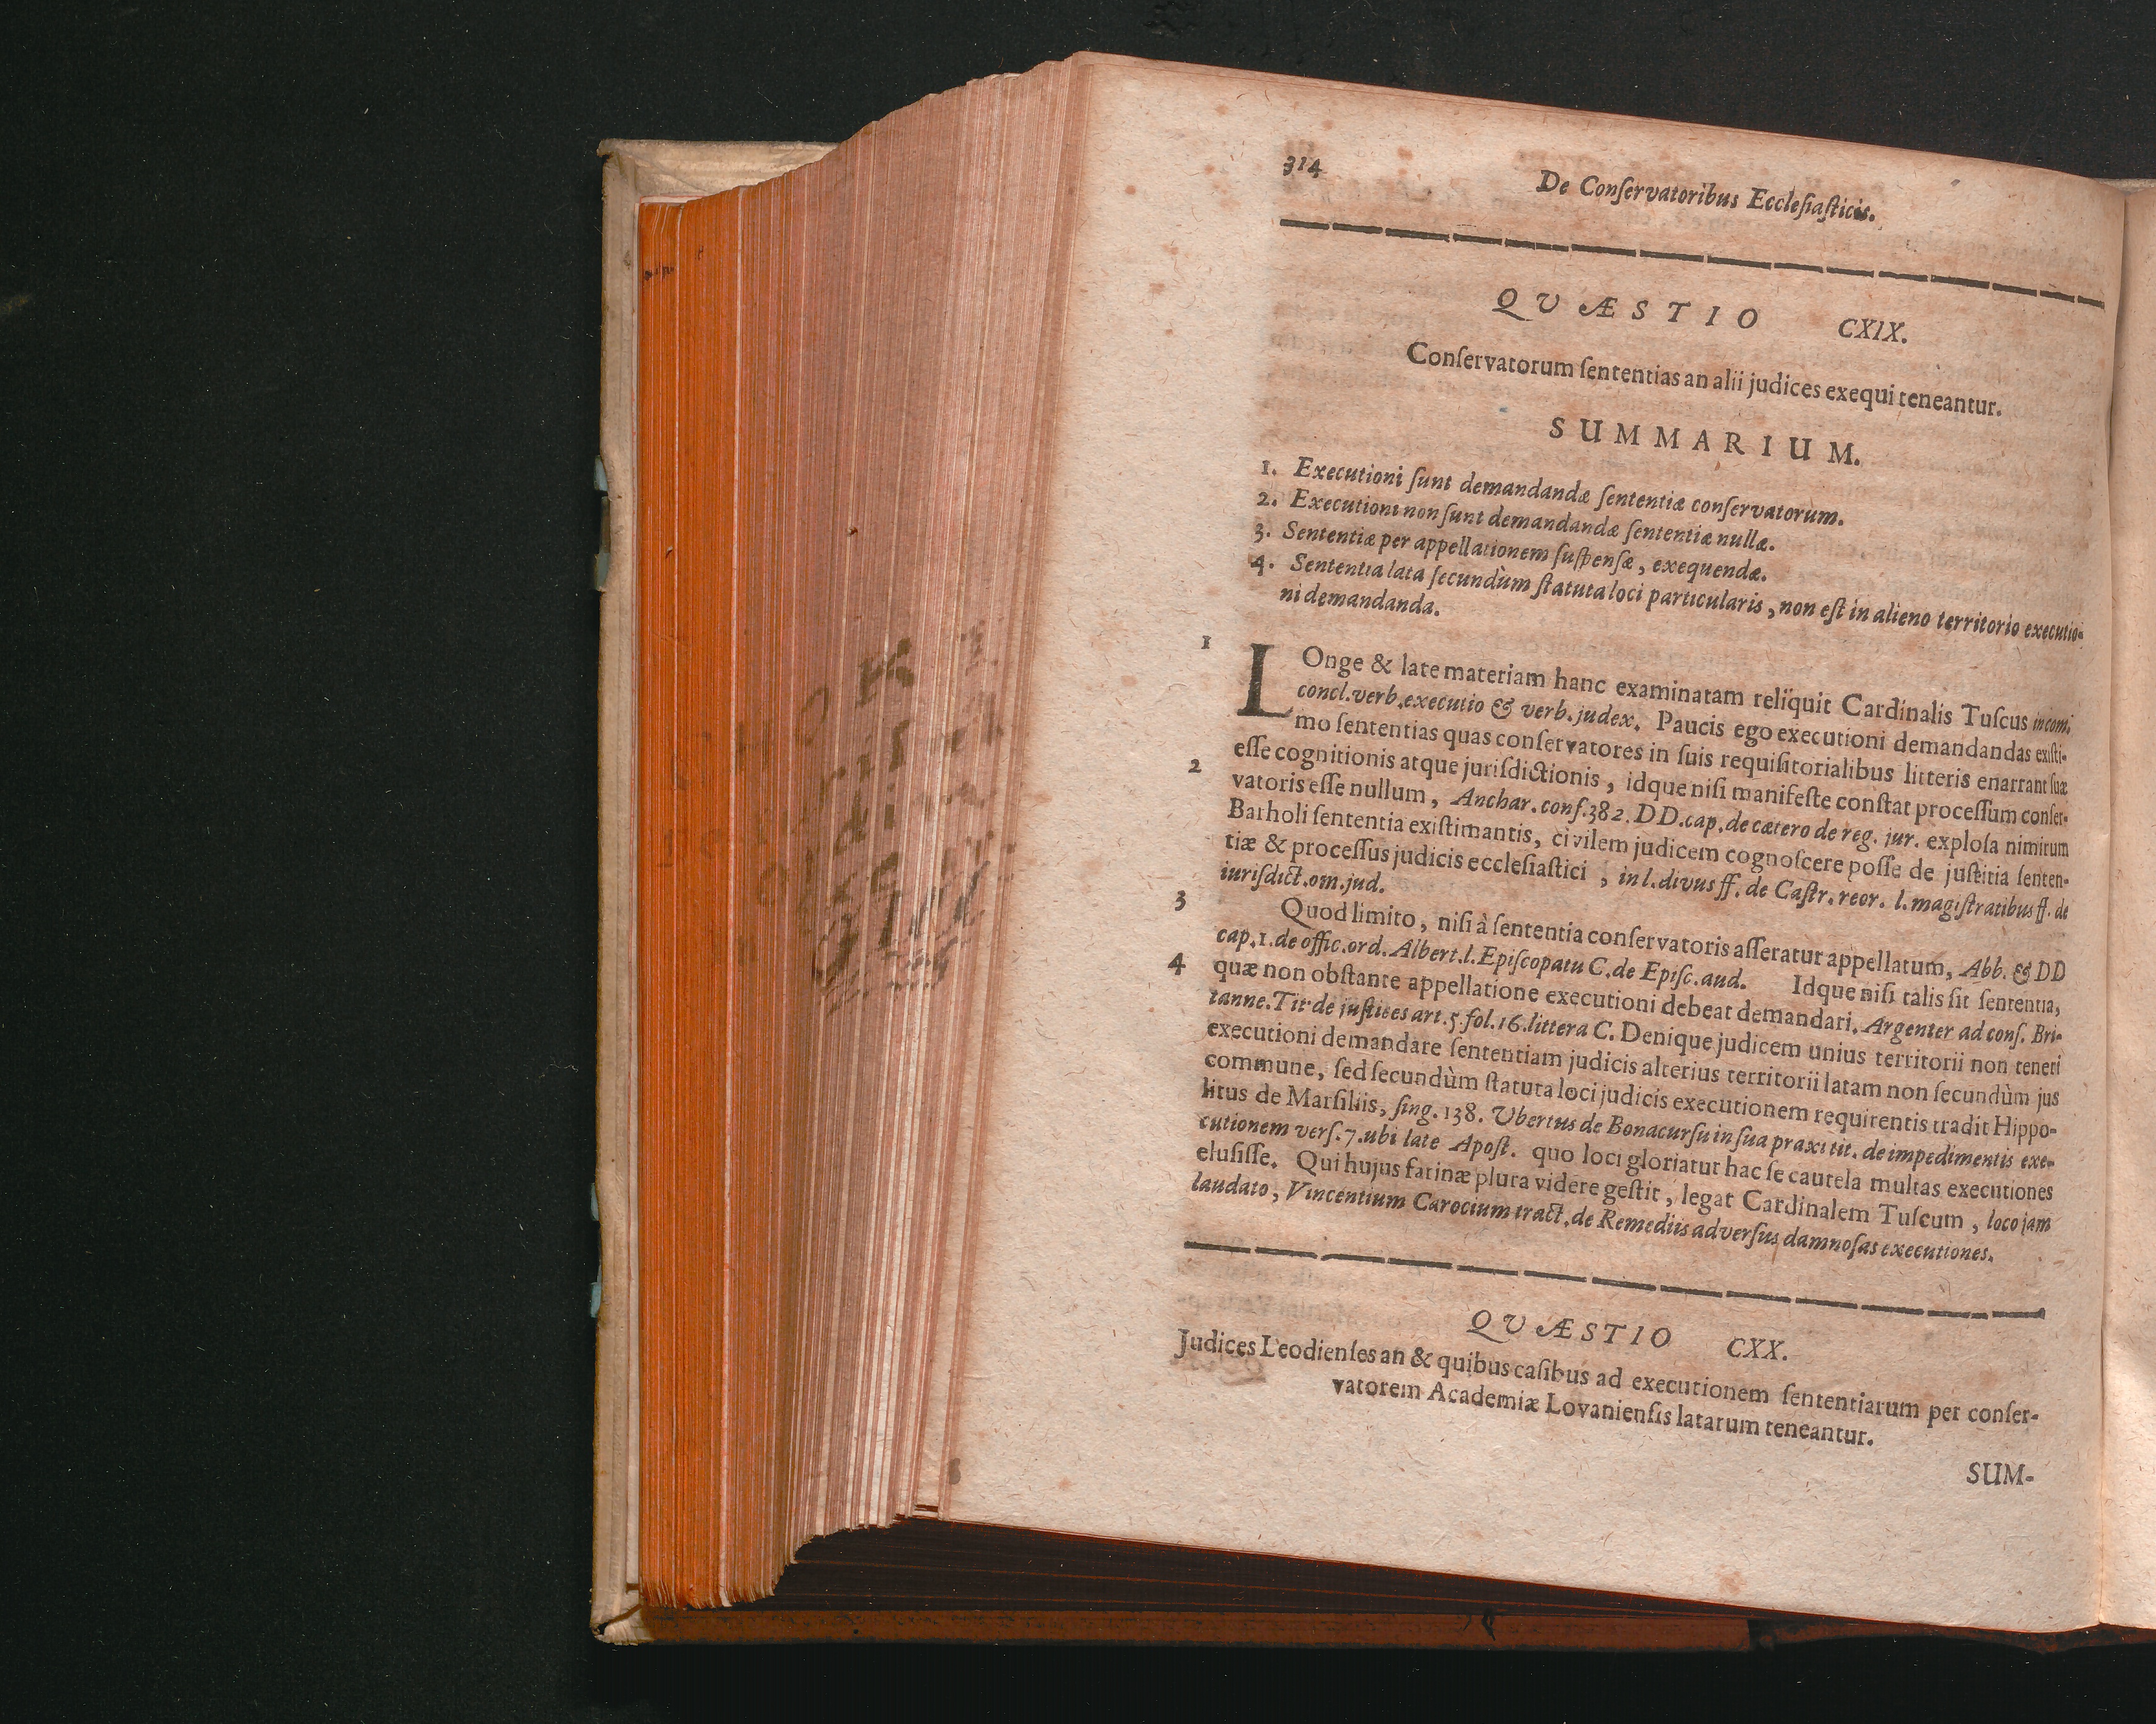 314
De Conſervatoribus Eccleſiaſticis.
QVÆSTIO CXIX.
Conſervatorum ſententias an alii judices exequi teneantur.
SUMMARIUM.
1. Executioni ſunt demandandæ ſententiæ conſervatorum.
2. Executioni non ſunt demandandæ ſententiæ nullæ.
3. Sententiæ per appellationem ſuſpenſæ, exequendæ.
4. Sententia lata ſecundùm ſtatuta loci particularis, non eſt in alieno territorio executio-
ni demandanda.
1
LOnge & late materiam hanc examinatam reliquit Cardinalis Tuſcus in com.
concl. verb. executio & verb. judex. Paucis ego executioni demandandas exiſti-
mo ſententias quas conſervatores in ſuis requiſitorialibus litteris enarrant ſuæ
2 eſſe cognitionis atque juriſdictionis, idque niſi manifeſte conſtat proceſſum conſer-
vatoris eſſe nullum, Anchar. conſ. 382. DD. cap. de cætero de reg. jur. exploſa nimirum
Barholi ſententia exiſtimantis, civilem judicem cognoſcere poſſe de juſtitia ſenten-
tiæ & proceſſus judicis eccleſiaſtici, in l. divus ff. de Caſtr. reor. l. magiſtratibus ff. de
iuriſdict. om. jud.
3 Quod limito, niſi à ſententia conſervatoris aſſeratur appellatum, Abb. & DD
cap. 1. de offic. ord. Albert. l. Epiſcopatu C. de Epiſc. aud. Idque niſi talis ſit ſententia,
4 quæ non obſtante appellatione executioni debeat demandari. Argenter ad conſ. Bri-
tanne. Tit de juſtices art. 5. fol. 16. littera C. Denique judicem unius territorii non teneri
executioni demandare ſententiam judicis alterius territorii latam non ſecundùm jus
commune, ſed ſecundùm ſtatuta loci judicis executionem requirentis tradit Hippo-
litus de Marſiliis, ſing. 138. Vbertus de Bonacurſu in ſua praxi tit. de impedimentis exe-
cutionem verſ. 7. ubi late Apoſt. quo loci gloriatur hac ſe cautela multas executiones
eluſiſſe. Qui hujus farinæ plura videre geſtit, legat Cardinalem Tuſcum, loco jam
laudato, Vincentium Carocium tract. de Remediis adverſus damnoſas executiones.
QVÆSTIO CXX.
Judices Leodienſes an & quibus caſibus ad executionem ſententiarum per conſer-
vatorem Academiæ Lovanienſis latarum teneantur.
SUM-